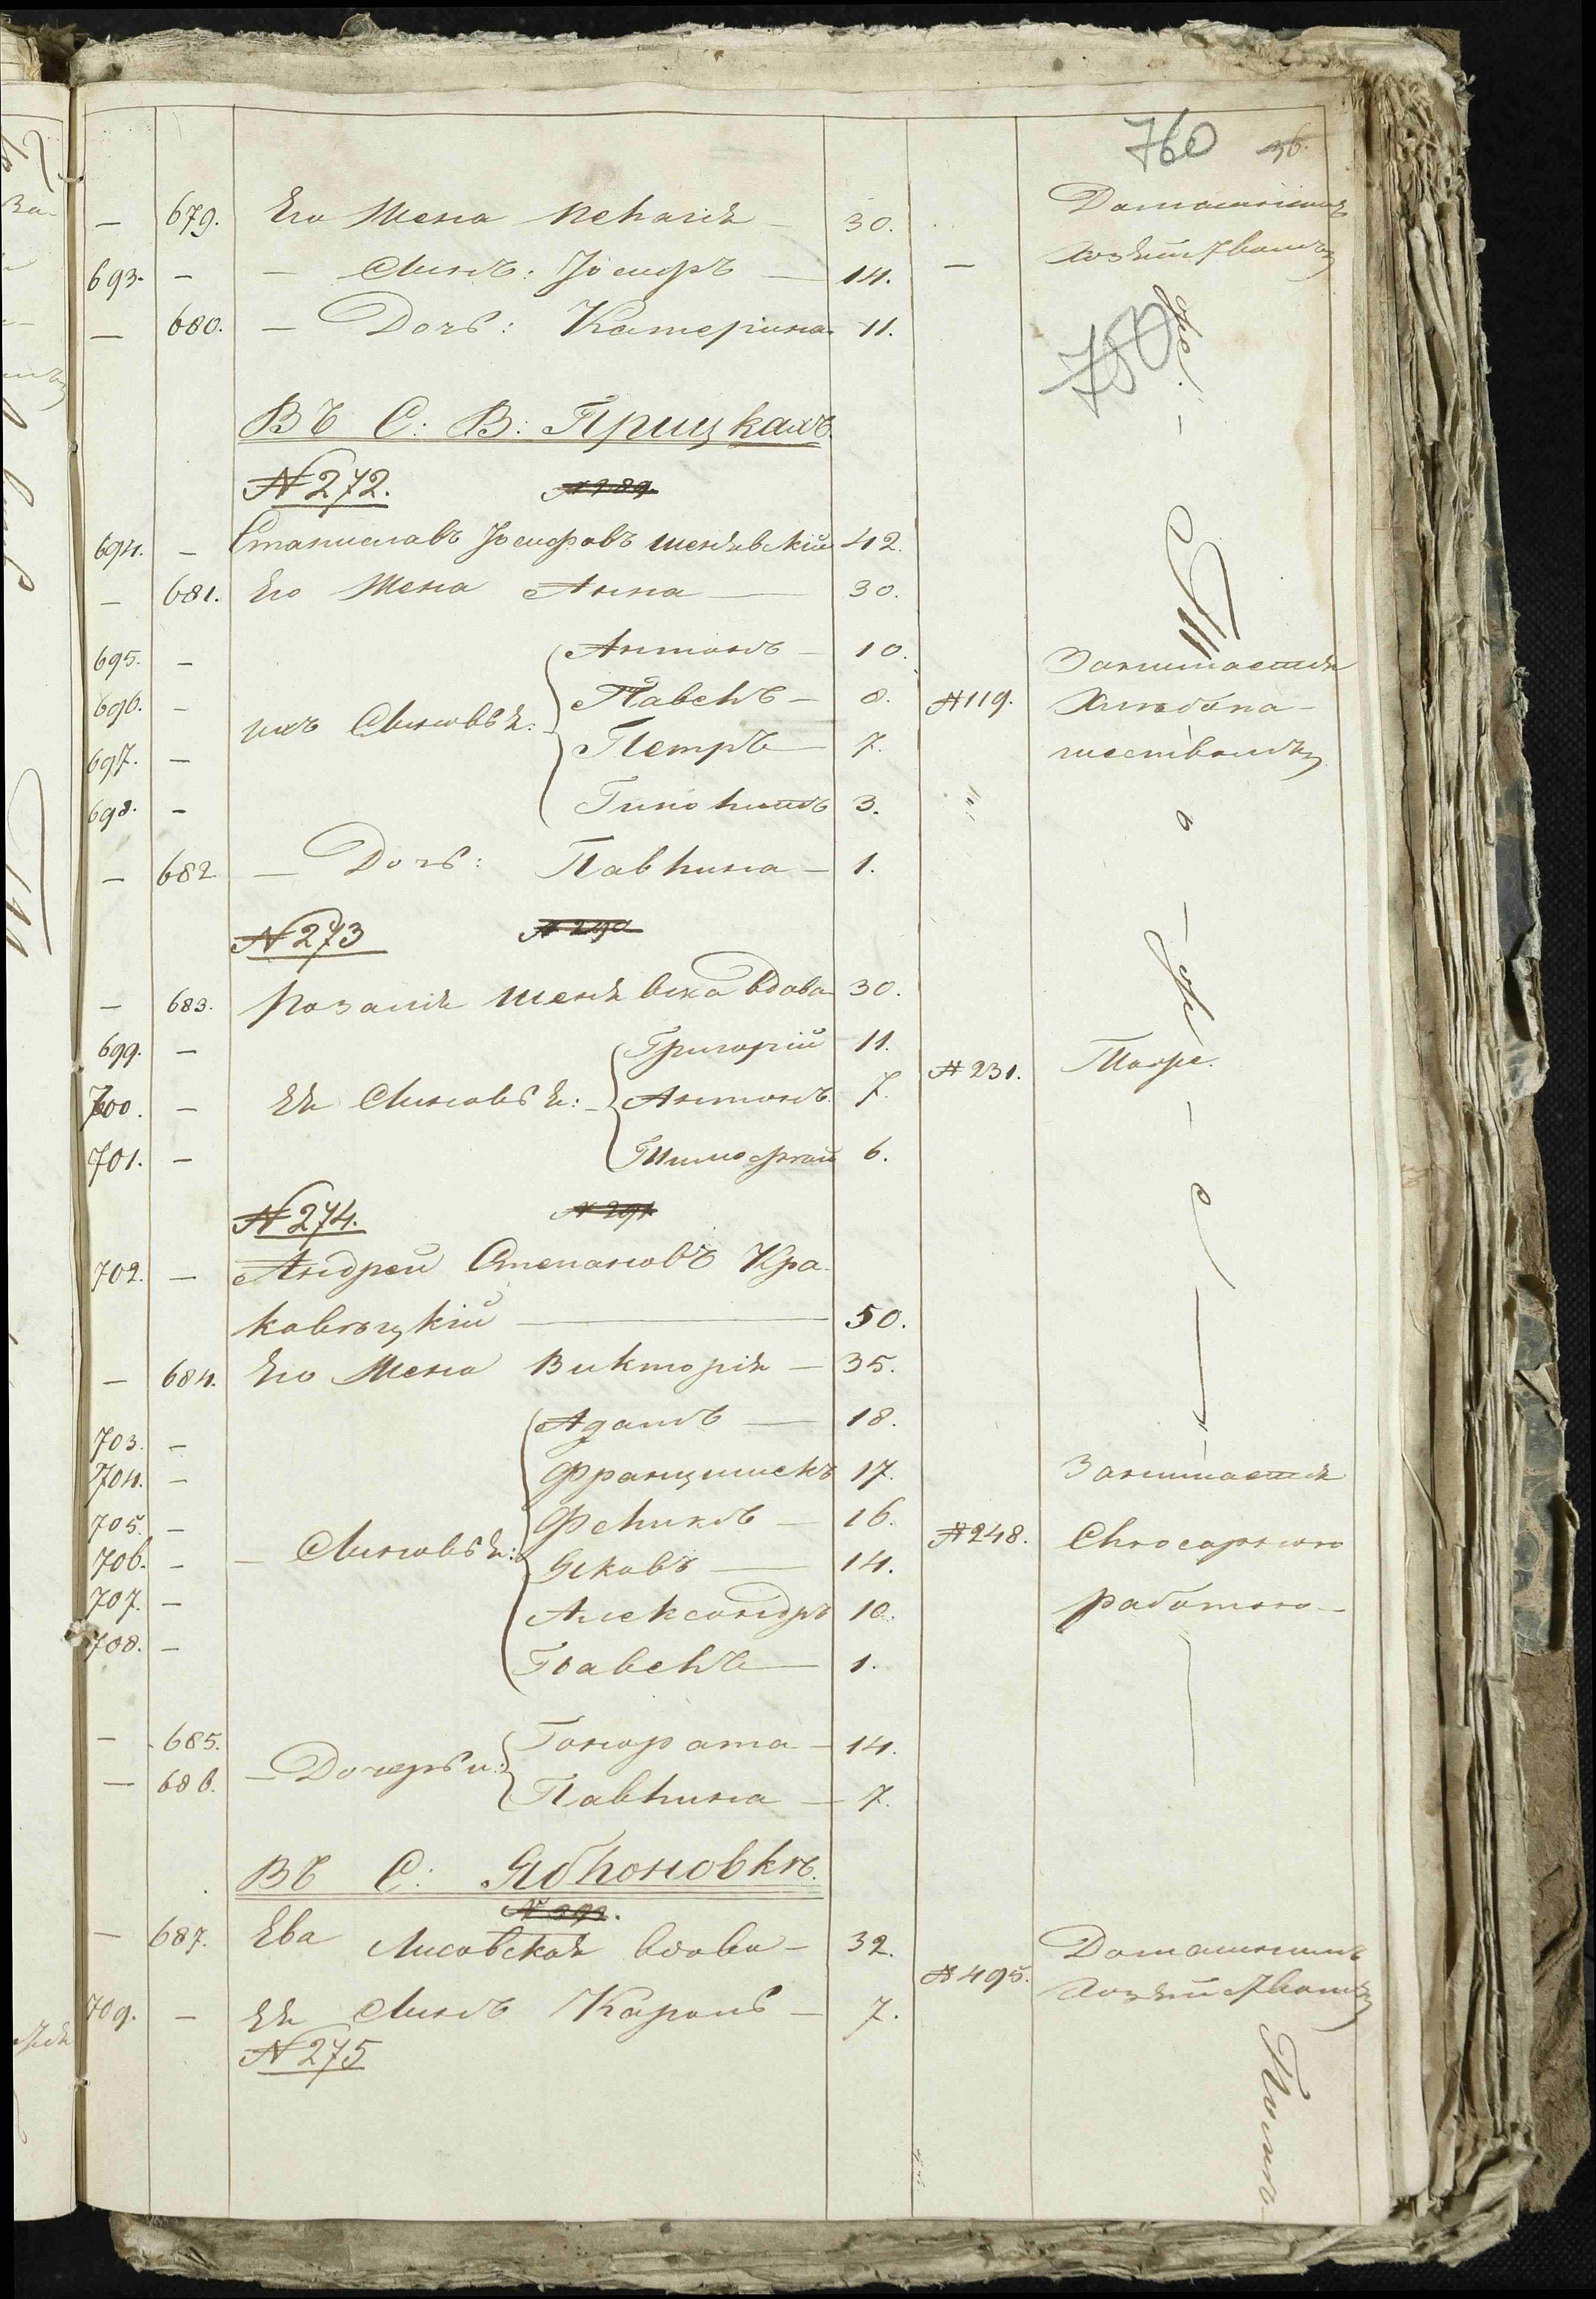 760 36.
— 679. Его Жена Пелагія — 30. Домашнимъ
693. — — Сынъ: Іосифъ — 14. — хозяйствомъ
— 680. — Дочь: Катерина 11.
750
Въ С: В: Прицкахъ
№ 272. № 289.
694. — Станиславъ Іосифовъ Шенявскій 42.
— 681. Его Жена Анна — 30.
695. — Антонъ — 10. Занимается
696. — ихъ Сыновья: Павелъ — 8. № 119. Хлѣбопа-
697. — Петръ — 7. шествомъ
698. — Гиполитъ 3.
— 682 — Дочь: Павлина — 1.
№ 273 № 290
— 683. Розалія Шенявска вдова 30.
699. — Григорій 11.
700. — Ея Сыновья: Антонъ 7. № 231. Тоже.
701. — Тимофей 6.
№ 274. № 291
702. — Андрей Степановъ Кра-
ковѣцкій — 50.
— 684. Его Жена Викторія — 35.
703. — Адамъ — 18.
704. — Францишекъ 17. Занимается
705. — Феликсъ — 16. № 248. Слюсарною
706. — — Сыновья: Яковъ — 14.
707. — Александръ 10. работою —
708. — Павелъ — 1.
— 685. Гонората — 14.
— 686. — Дочери: Павлина — 7.
Въ С: Яблоновкѣ.
№ 292.
— 687. Ева Лисовская вдова — 32. Домашнимъ
709. — Ея Сынъ Кароль — 7. № 495. хозяйствомъ
№ 275